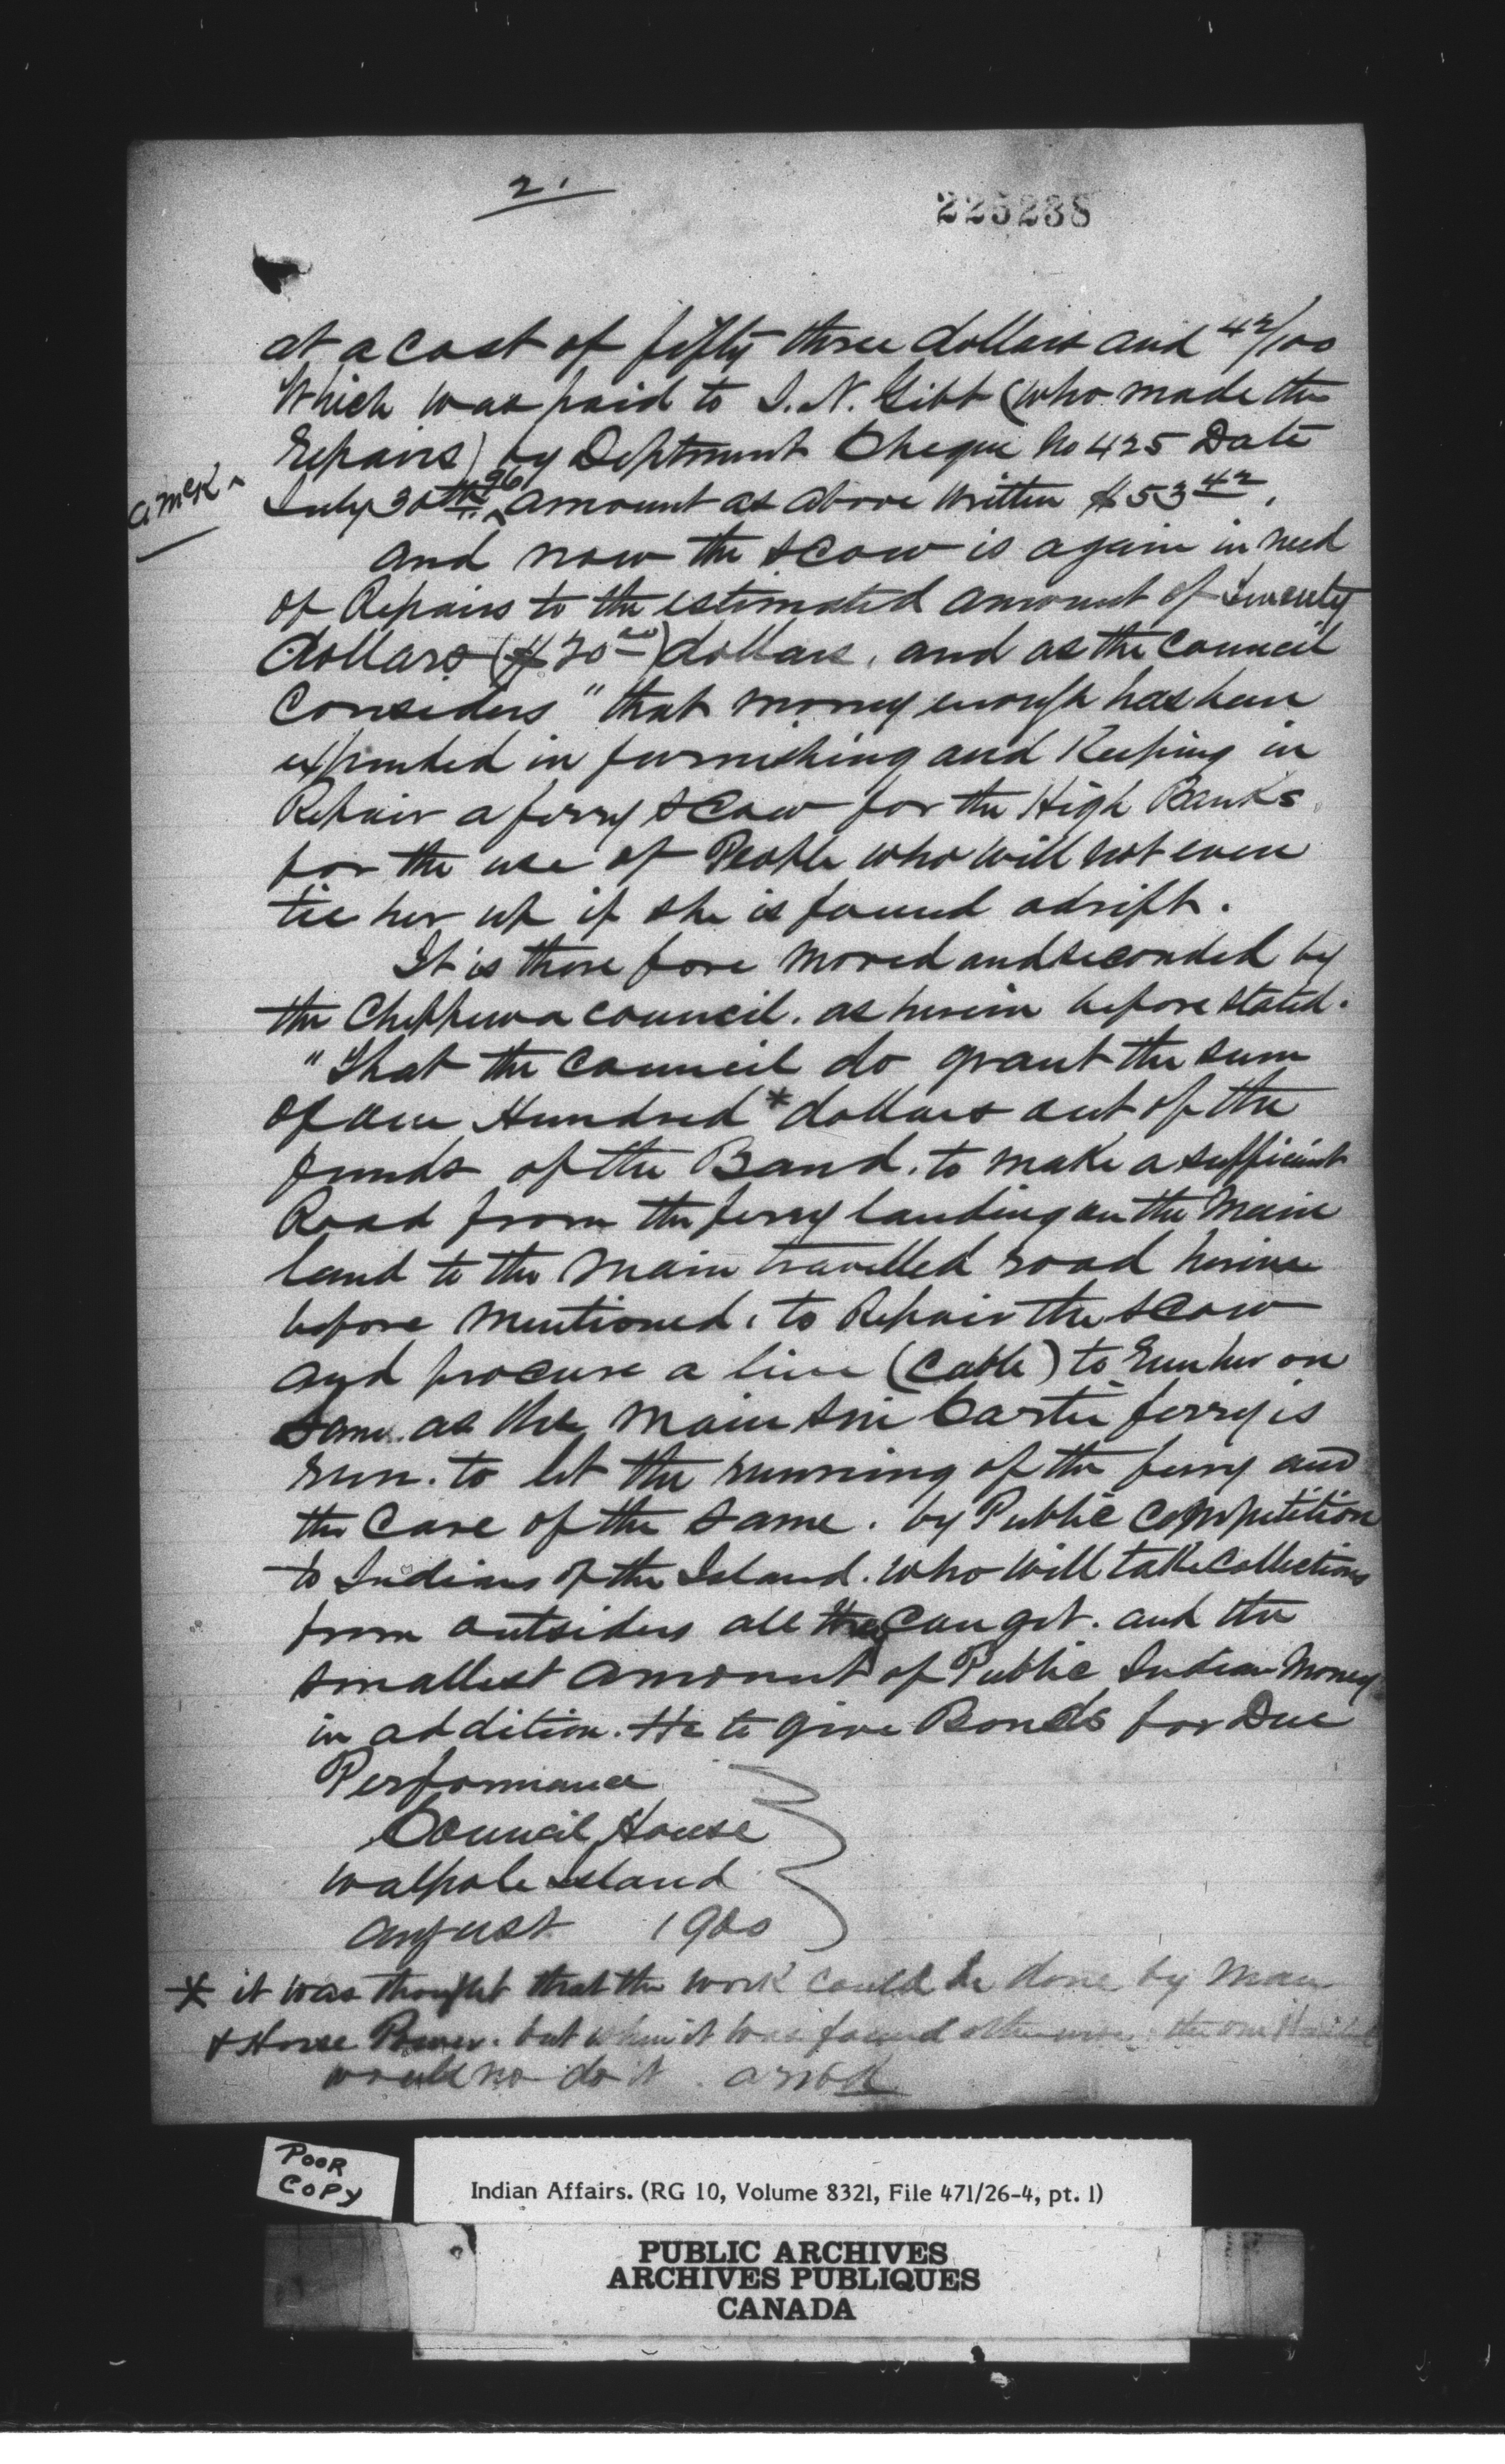 2.
225238
at a cost of fifty three dollars and 42/100
Which was paid to I. N. Gibb (who made the
repairs) by Deptment Cheque No 425 Date
AMcK
July 30th 96 amount as above written $53 42.
and now the scow is again in need
of Repairs to the estimated amount of twenty
dollars ($20 00) dollars, and as the Council
Considers "that money enough has been
expended in furnishing and Keeping in
Repair a ferry scow for the High Banks
for the use of People who will not even
tie her up if she is found adrift.
It is there fore moved and seconded by
the Chippewa council. as herein before stated.
"That the Council do grant the sum
of one Hundred * dollars out of the
funds of the Band. to make a sufficient
Road from the ferry landing on the Main
land to the main travelled road herein
before mentioned, to Repair the scow
and procure a line (Cable) to run her on
same as the main Sni Cartie ferry is
run. to let the running of the ferry and
the Care of the same. by Public Competition
to Indians of the Island. who will take Collections
from outsiders all they can get. and the
smallest amount of Public Indian Money
in addition. He to give Bonds for Due
Performance
Council House
Walpole Island
August 1900
* it was thought that the work could be done by Man
& Horse Power. but when it was found otherwise the one
would no do it. AMcK
POOR
COPY
Indian Affairs. (RG 10, Volume 8321, File 471/26-4, pt. 1)
PUBLIC ARCHIVES
ARCHIVES PUBLIQUES
CANADA